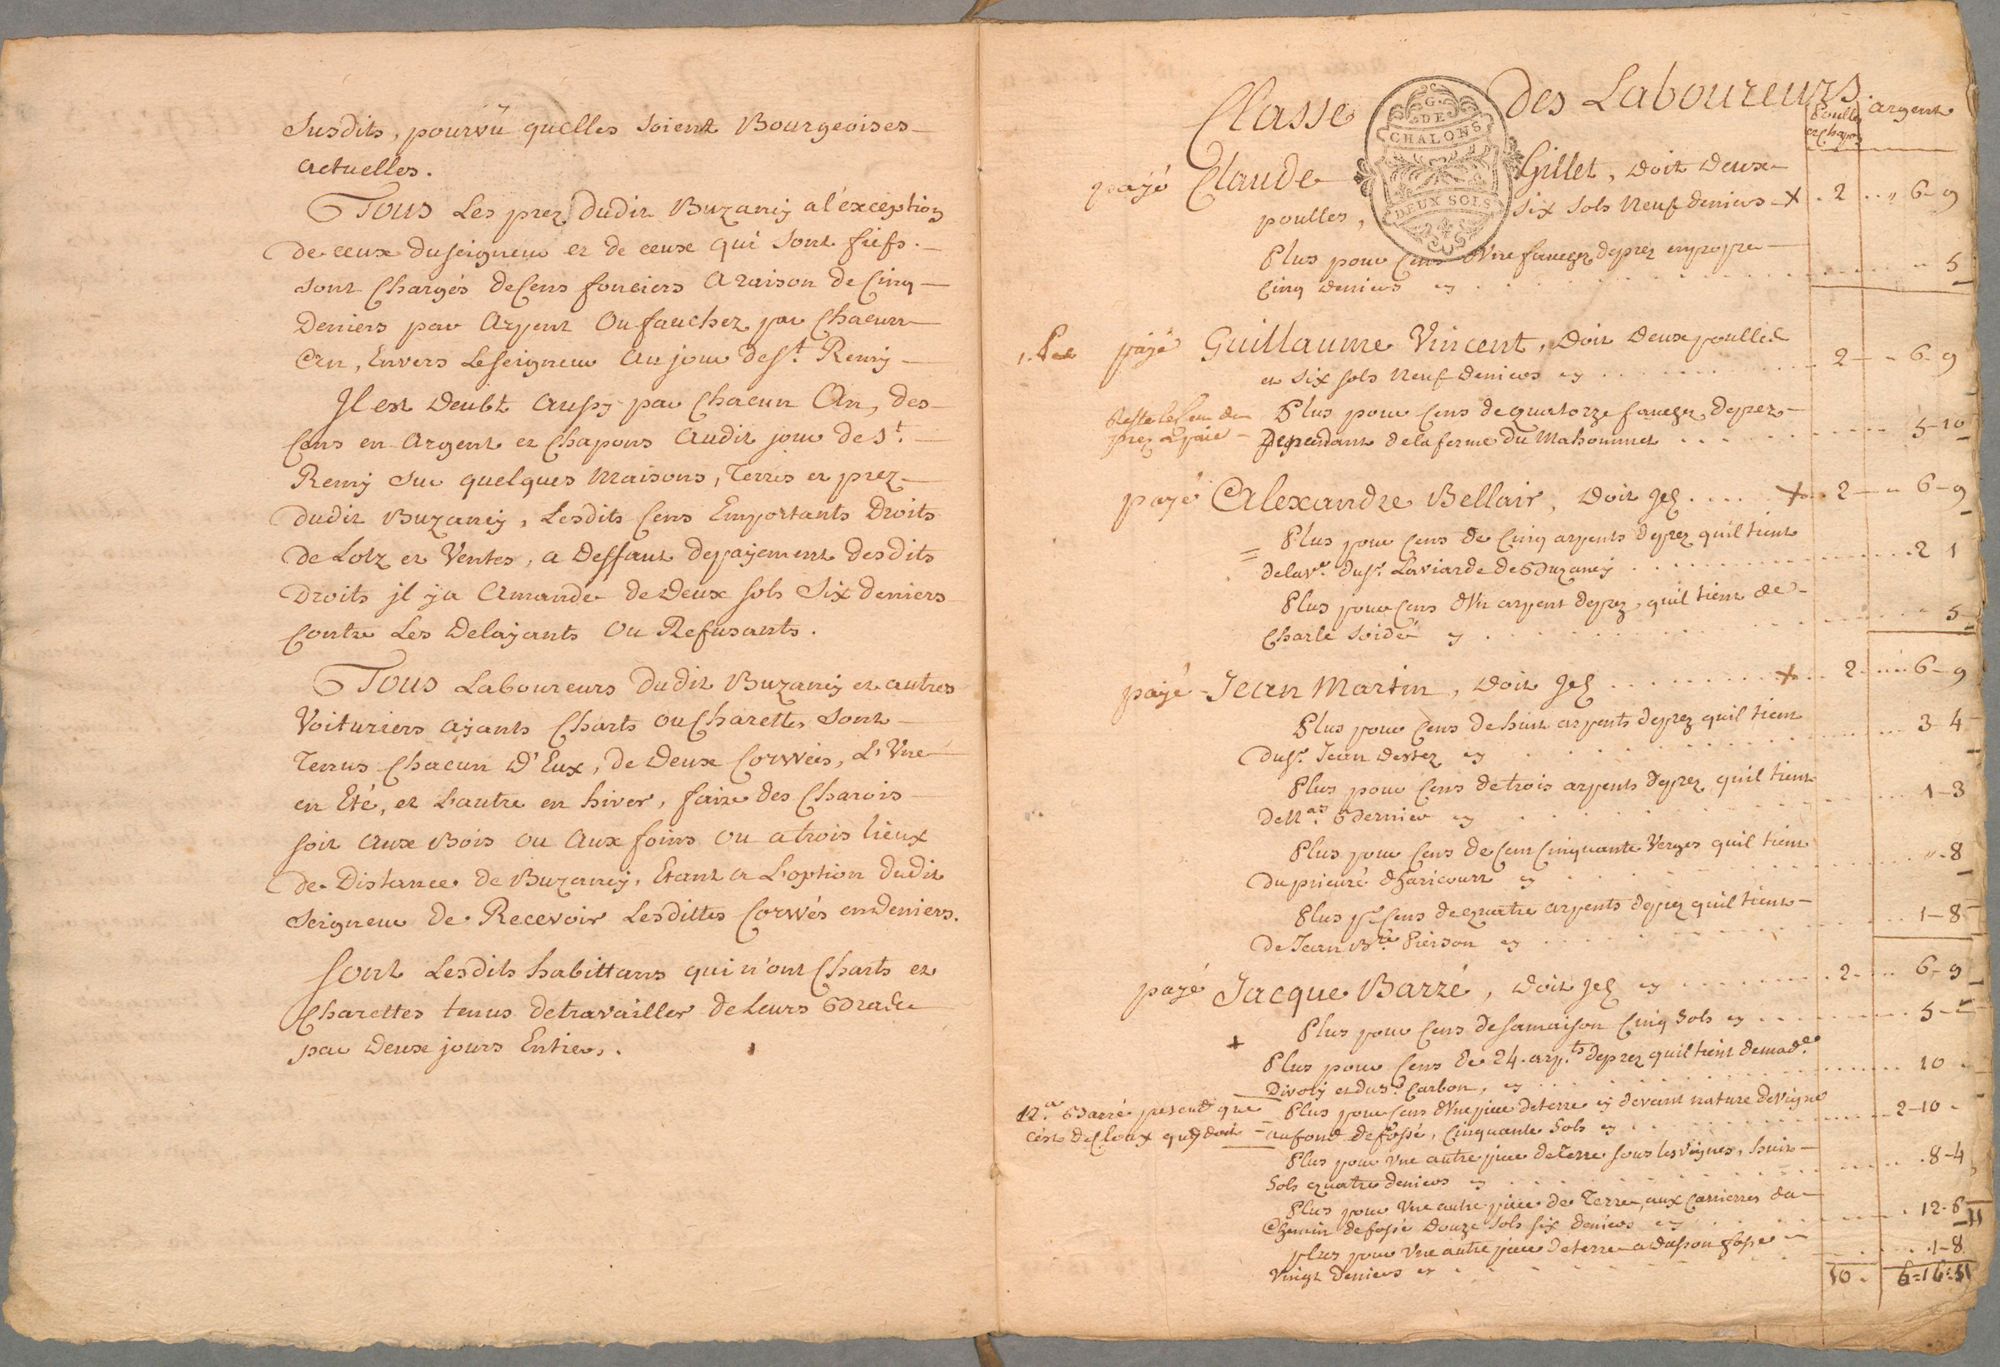 Susdits, pourvû quelles soient Bourgeoises
actuelles.
Tous Les prez dudit Buzancÿ a l'éxception
de ceux du seigneur et de ceux qui sont fiefs.
sont Chargés de Cens fonciers a raison de Cinq
Deniers par Arpent Ou fauchez par Chacun
An, Envers Le seigneur au jour de St. Remÿ
Jl est deubt aussÿ par Chacun An, des
Cens en Argent et Chapons audit jour de St.
Remÿ sur quelques Maisons, Terres et prez
dudit Buzancÿ, Lesdits Cens Emportants Droits
de Lotz et Ventes, a deffaut de payement desdits
Droits jl ÿ a amande de Deux sols Six deniers
Contre Les Delaÿants Ou Refusants.
Tous Laboureurs dudit Buzancÿ et autres
Voituriers aÿants Charts ou Charettes sont
Tenus Chacun d'Eux, de Deux Corwées, L'Vne
en Eté, et L'autre en hiver, faire des Charois
soit aux Bois ou aux foins ou a trois lieux
de Distance de Buzancÿ, Etant a L'option dudit
Seigneur de Recevoir Lesdittes Corwés en Deniers.
Sont Lesdits habittans qui n'ont Charts et
Charettes tenus de travailler de Leurs Bras
par Deux jours Entiers.
Classe des Laboureurs
Poulles et Chapons
argent
G. DE CHALONS
DEUX SOLS
payé Claude Gillet, doit deux
poulles, six sols neuf deniers + 2 " 6 - 9
Plus pour Cens d'Vne fauchez de prez en propre
Cinq deniers cy 5
payé Guillaume Vincent, doit deux poulles
et six sols neuf deniers cy 2 - " 6 - 9
Reste le Cens des
prez a paier
Plus pour Cens de quatorze fauchez de prez
Dependant de la ferme du Mahommet 5 - 10
payé Alexandre Bellair, doit Jd + 2 - " 6 - 9
Plus pour Cens de Cinq arpents de prez quil tient
de la ve. du Sr. Laviarde de Buzancÿ 2 1
Plus pour Cens d'Vn arpent de prez, quil tient de
Charle soidé cy 5
payé Jean Martin, doit Jd + 2 6 - 9
Plus pour Cens de huit arpents de prez quil tient
du Sr. Jean cy 3 - 4
Plus pour Cens de trois arpents de prez quil tient
de Nas. Bdernier cy 1 - 3
Plus pour Cens de Cent Cinquante Verges quil tient
du prieuré d'haricourt cy " - 8
Plus pr. Cens de quatre arpents de prez quil tient
de Jean Bte. Pierson cy 1 - 8
payé Jacque Barré, doit Jd cy 2 6 - 9
Plus pour Cens de sa maison Cinq Sols cy 5 -
+ Plus pour Cens de 24 arpts. de prez quil tient de made.
Divorÿ et du Sr. Carbon, cy 10
Barré pretend que
c'est qui doit
Plus pour Cens d'Vne piece de terre cy devant nature de Vigne
au fond de fossé, Cinquante Sols cy 2 - 10
Plus pour Vne autre piece de Terre sous les Vignes, huit
Sols quatre deniers cy 8 - 4
Plus pour Vne autre piece de Terre, aux Carrieres du
Chemin de fossé douze sols six deniers cy 12 - 6
plus pour Vne autre piece de terre a fosse
Vingt deniers cy 1 - 8
10 6 = 16 = 11